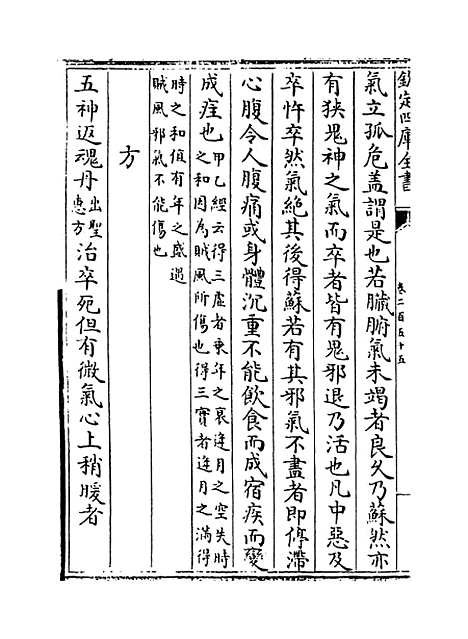 欽定四庫全書
卷二百五十五
氣立孤危盖謂是也若臟腑氣未竭者良久乃蘇然亦
有挟鬼神之氣而卒者皆有鬼邪退乃活也凡中惡及
卒忤卒然氣絶其後得蘇若有其邪氣不盡者即停滯
心腹令人腹痛或身體沉重不能飲食而成宿疾而變
成疰也
甲乙經云得三虚者乗年之衰逢月之空失時
之和因為賊風所傷也得三實者逢月之滿得
時之和值有年之盛遇
賊風邪氣不能傷也
方
五神返魂丹
出聖
惠方
治卒死但有微氣心上稍暖者